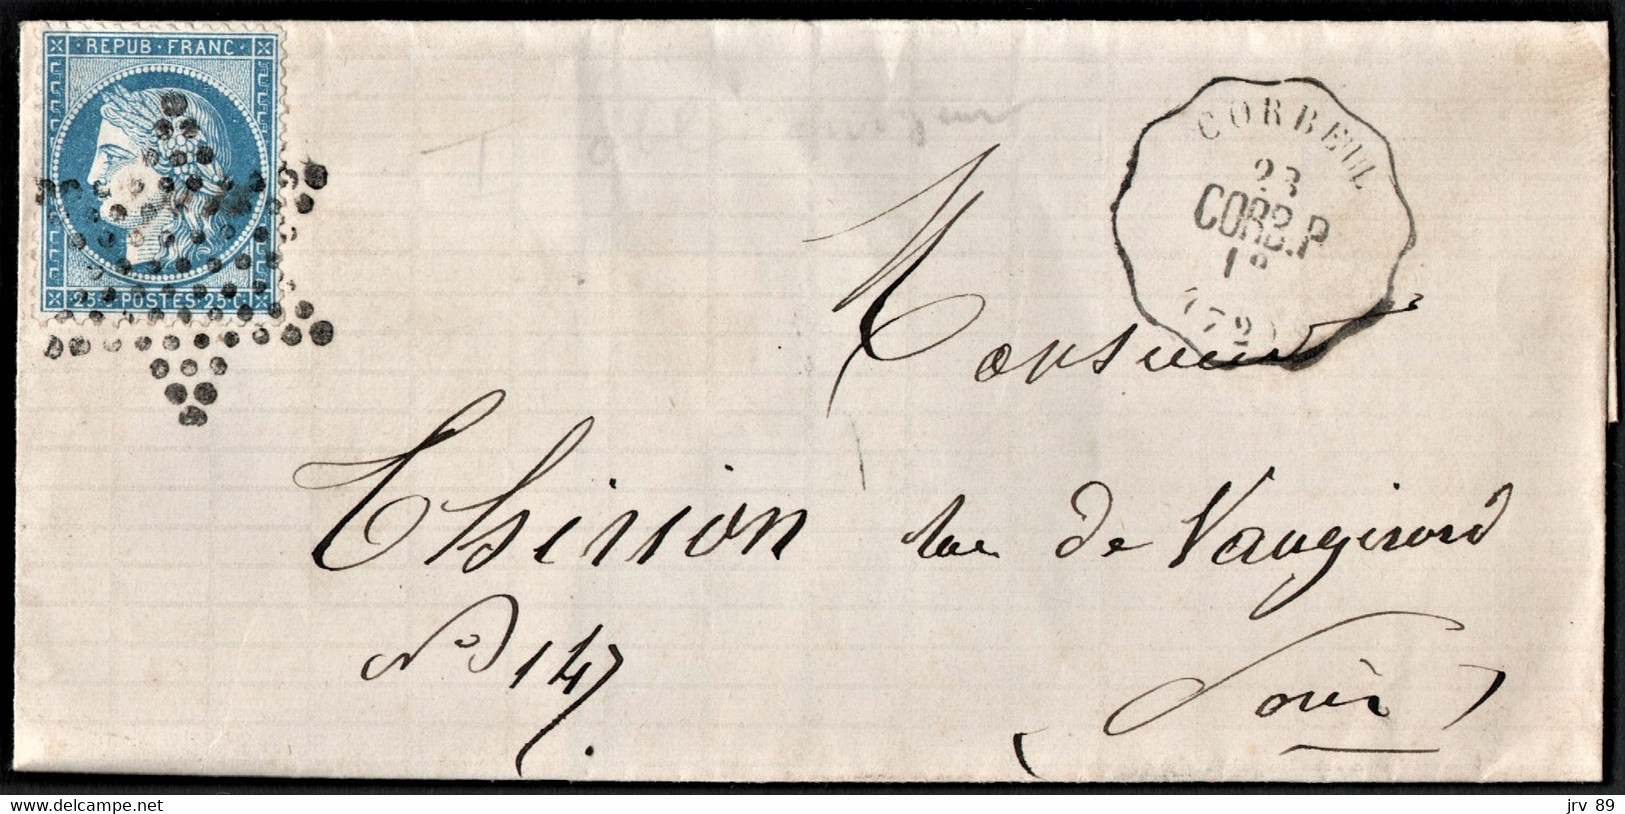 REPUB · FRANC ·
25 C POSTES 25 C
CORBEIL
23
CORB.P
1°
(72)
Monsieur
Thirion rue de Vaugirard
N° 147.
Paris
www.delcampe.net
jrv 89